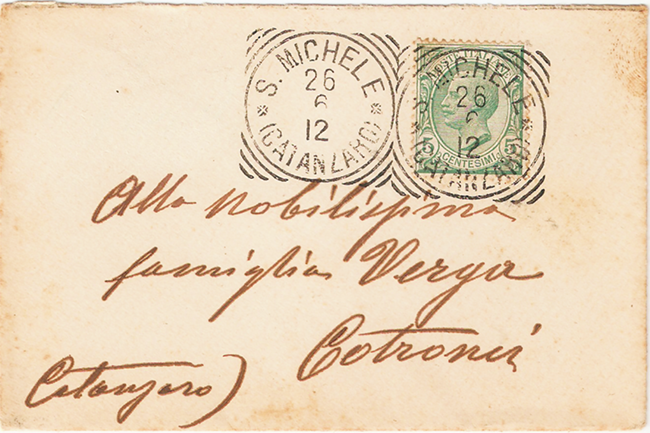 S. MICHELE
26
6
12
(CATANZARO)
S. MICHELE
26
6
12
(CATANZARO)
5 CENTESIMI 5
Alla nobilissima
famiglia Verga
Cotronei
Catanzaro)